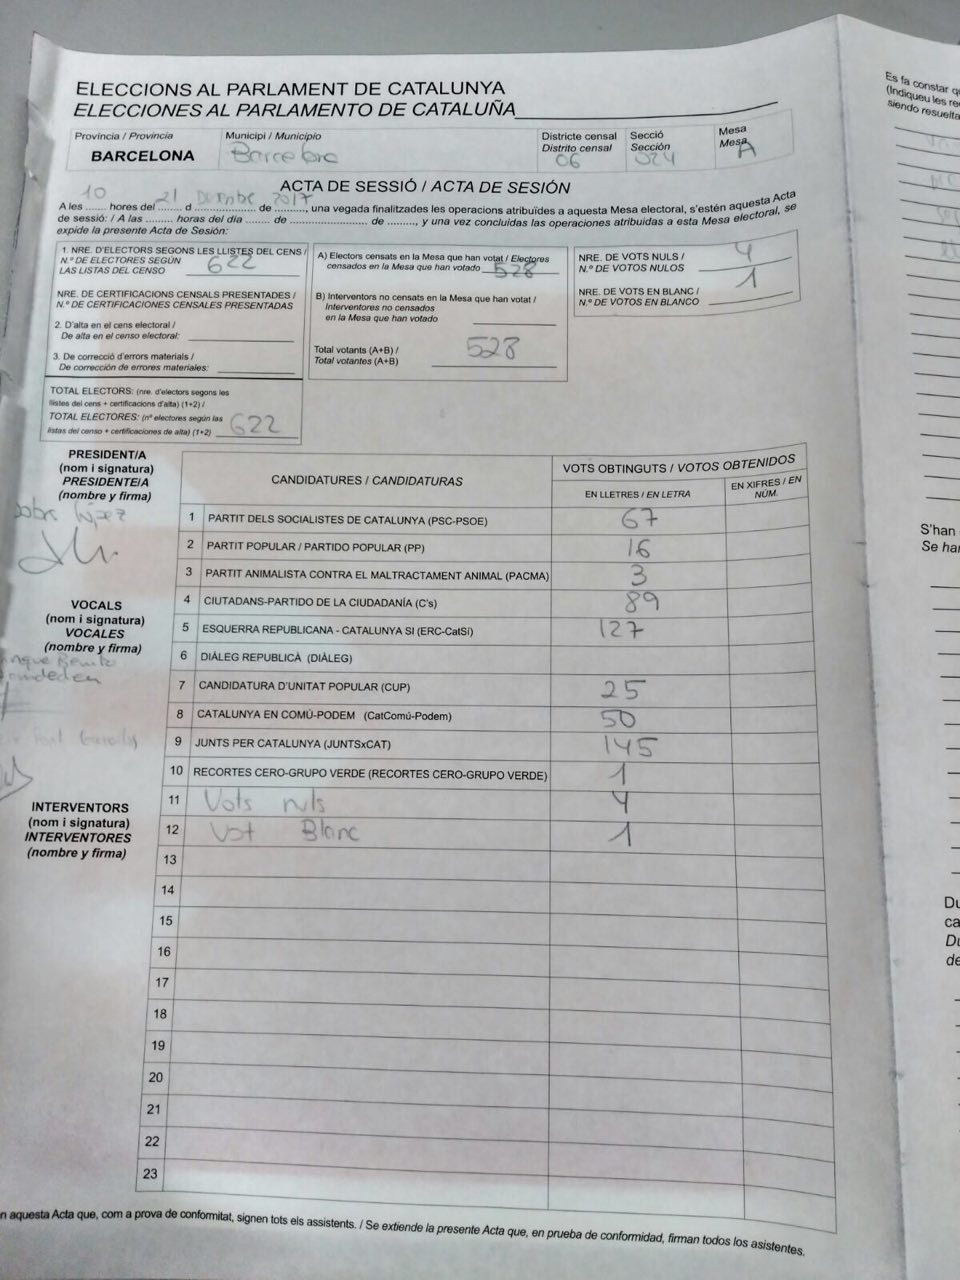 ELECCIONS AL PARLAMENT DE CATALUNYA
ELECCIONES AL PARLAMENTO DE CATALUÑA
Província / Provincia
BARCELONA
Municipi / Municipio
Barcelona
Districte censal
Distrito censal
06
Secció
Sección
024
Mesa
Mesa
A
ACTA DE SESSIÓ / ACTA DE SESIÓN
A les 10 hores del 21 d Desembre de 2017, una vegada finalitzades les operacions atribuïdes a aquesta Mesa electoral, s'estén aquesta Acta
de sessió: / A las ......... horas del día ....... de ...................... de ........., y una vez concluidas las operaciones atribuidas a esta Mesa electoral, se
expide la presente Acta de Sesión:
1. NRE. D'ELECTORS SEGONS LES LLISTES DEL CENS /
N.º DE ELECTORES SEGÚN
LAS LISTAS DEL CENSO 622
NRE. DE CERTIFICACIONS CENSALS PRESENTADES /
N.º DE CERTIFICACIONES CENSALES PRESENTADAS
2. D'alta en el cens electoral /
De alta en el censo electoral:
3. De correcció d'errors materials /
De corrección de errores materiales:
TOTAL ELECTORS: (nre. d'electors segons les
llistes del cens + certificacions d'alta) (1+2) /
TOTAL ELECTORES: (nº electores según las
listas del censo + certificaciones de alta) (1+2) 622
A) Electors censats en la Mesa que han votat / Electores
censados en la Mesa que han votado 528
B) Interventors no censats en la Mesa que han votat /
Interventores no censados
en la Mesa que han votado
Total votants (A+B) /
Total votantes (A+B) 528
NRE. DE VOTS NULS /
N.º DE VOTOS NULOS 4
NRE. DE VOTS EN BLANC /
N.º DE VOTOS EN BLANCO 1
PRESIDENT/A
(nom i signatura)
PRESIDENTE/A
(nombre y firma)
López
VOCALS
(nom i signatura)
VOCALES
(nombre y firma)
Benito
INTERVENTORS
(nom i signatura)
INTERVENTORES
(nombre y firma)
CANDIDATURES / CANDIDATURAS
VOTS OBTINGUTS / VOTOS OBTENIDOS
EN LLETRES / EN LETRA
EN XIFRES / EN NÚM.
1 PARTIT DELS SOCIALISTES DE CATALUNYA (PSC-PSOE) 67
2 PARTIT POPULAR / PARTIDO POPULAR (PP) 16
3 PARTIT ANIMALISTA CONTRA EL MALTRACTAMENT ANIMAL (PACMA) 3
4 CIUTADANS-PARTIDO DE LA CIUDADANÍA (C's) 89
5 ESQUERRA REPUBLICANA - CATALUNYA SI (ERC-CatSí) 127
6 DIÀLEG REPUBLICÀ (DIÀLEG)
7 CANDIDATURA D'UNITAT POPULAR (CUP) 25
8 CATALUNYA EN COMÚ-PODEM (CatComú-Podem) 50
9 JUNTS PER CATALUNYA (JUNTSxCAT) 145
10 RECORTES CERO-GRUPO VERDE (RECORTES CERO-GRUPO VERDE) 1
11 Vots nuls 4
12 Vot Blanc 1
13
14
15
16
17
18
19
20
21
22
23
n aquesta Acta que, com a prova de conformitat, signen tots els assistents. / Se extiende la presente Acta que, en prueba de conformidad, firman todos los asistentes.
Es fa constar q
(Indiqueu les re
siendo resuelta
S'han
Se ha
Du
ca
Du
de